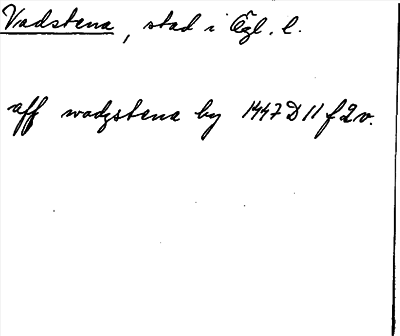 Vadstena, stad i Ögl. l.
aff wadzstena by 1447 D 11 f 2 v.